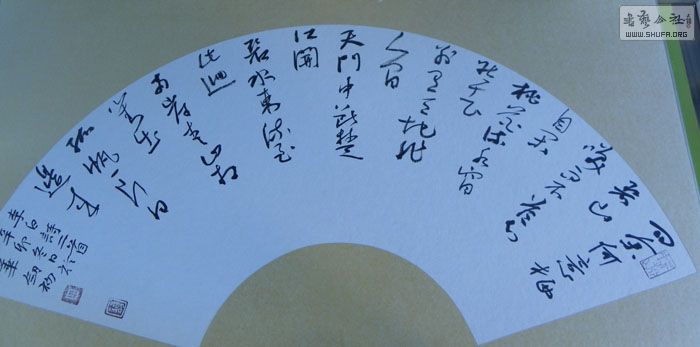 問余何意栖
碧山
笑而不答心
自閑
桃花流水窅
然去
別有天地非
人間
天門中斷楚
江開
碧水東流至
此迴
兩岸青山相
對出
孤帆一片日
邊來
李白詩二首
辛卯冬日
書藝公社
WWW.SHUFA.ORG